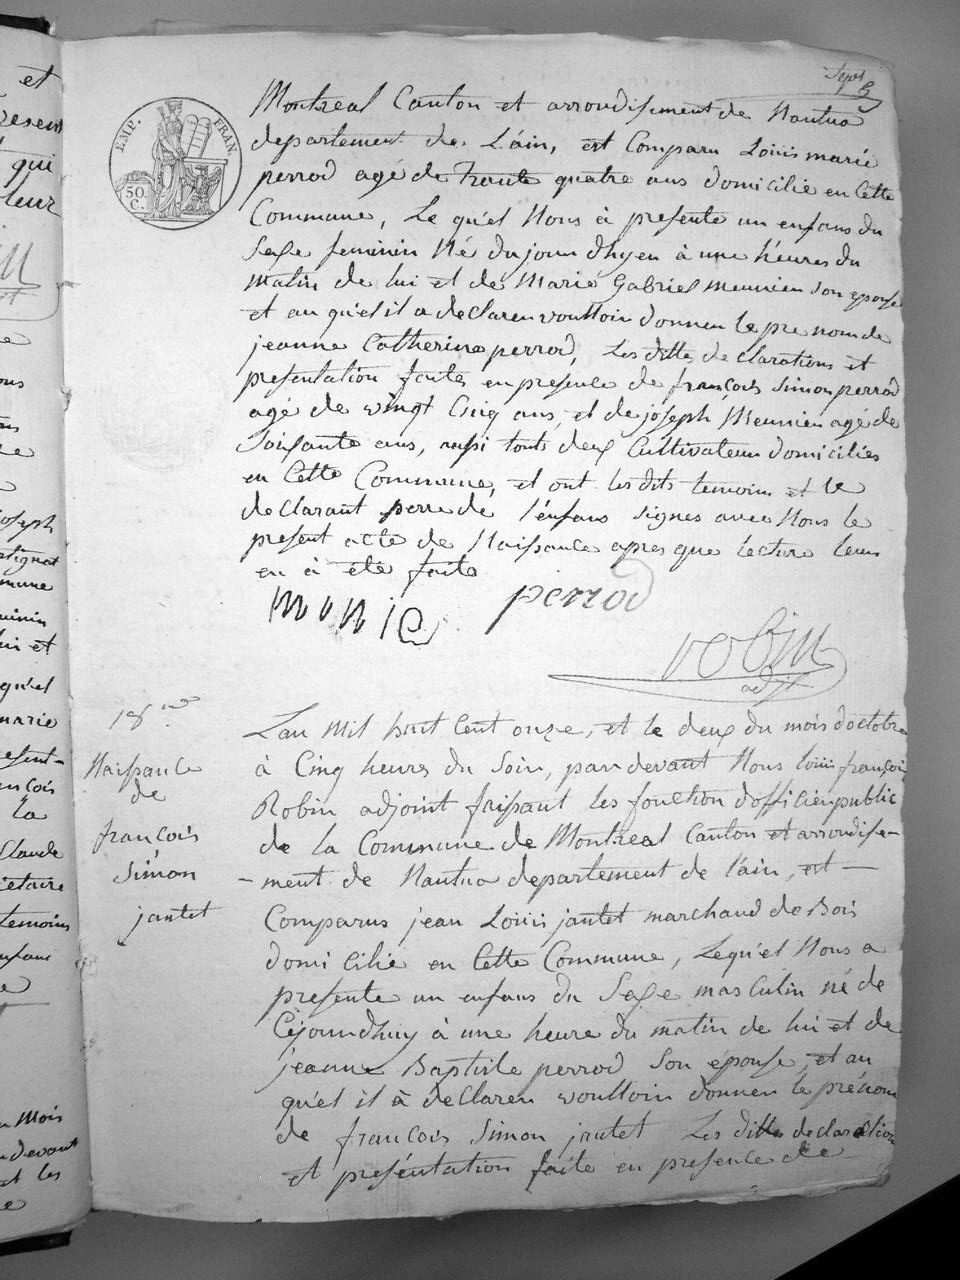 Sept
EMP. FRAN.
50 C.
Montreal Canton et arrondisement de Nantua
departement de L'ain, est Comparu Louis marie
perrod agé de Trante quatre ans domicilié en Cette
Commune, Le qu'el Nous à presente un enfans du
Sexe feminin Né du jour d'hyer à une heures du
matin de lui et de Marie Gabriel meunier son epouse
et au qu'el il a declarer voulloir donner le prenom de
jeanne Catherine perrod, Les dittes declarations et
presentation faites en presence de françois Simon perrod
agé de vingt Cinq ans, et de joseph Meunier agé de
Soixante ans, touts deux Cultivateur domiciliés
en Cette Commune, et ont lesdits temoins et le
declarant perre de l'enfans signes avec Nous le
present acte de Naissance apres que lecture leur
en à été faite
monie perrod
robin
adjt
18me
Naissance
de
françois
Simon
jantet
Lan mil huit Cent onze, et le deux du mois d'octobre
à Cinq heures du Soir, par devant Nous louis françois
Robin adjoint faissant les fonction d'officier public
de la Commune de Montreal Canton et arrondise-
-ment de Nantua departement de l'ain, est
Comparus jean Louis jantet marchand de Bois
domicilié en Cette Commune, Lequ'el Nous a
presente un enfans du Sexe masculin né de
Cejourdhuy à une heure du matin de lui et de
jeanne Baptiste perrod Son épouse, et au
qu'el il à declarer voulloir donner le prénom
de françois Simon jantet Les ditte declaration
et présentation faite en presence de
et
qui
leur
joseph
mune
lui et
qu'el
marie
la
Claude
temoins
mois
devant
et les